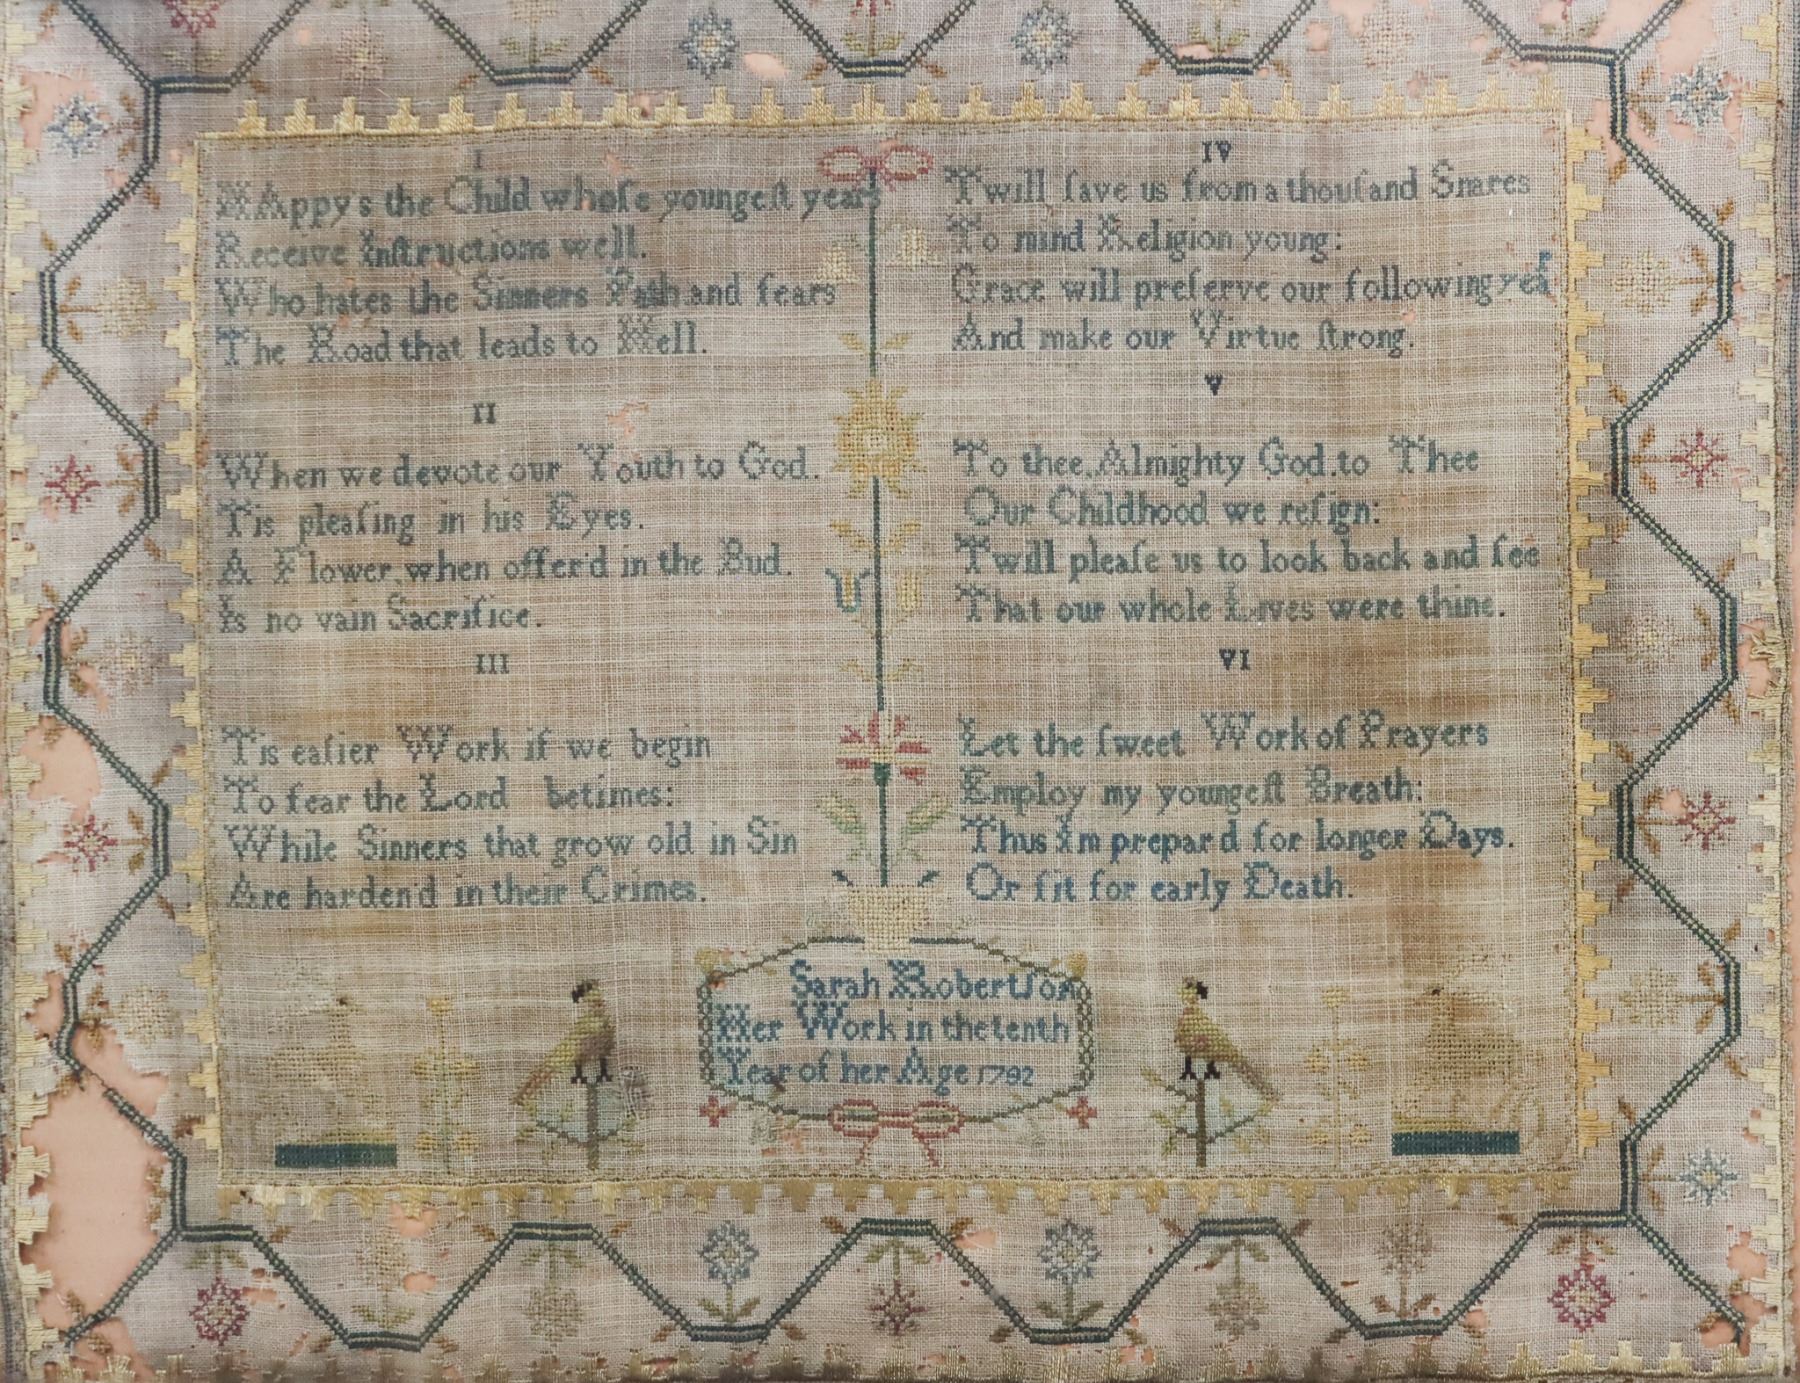 I
HAppy's the Child whoſe youngeſt years
Receive Inſtructions well.
Who hates the Sinners Path and fears
The Road that leads to Hell.
II
When we devote our Youth to God.
Tis pleaſing in his Eyes.
A Flower, when offer'd in the Bud.
Is no vain Sacrifice.
III
Tis eaſier Work if we begin
To fear the Lord betimes:
While Sinners that grow old in Sin
Are harden'd in their Crimes.
IV
Twill ſave us from a thouſand Snares
To mind Religion young:
Grace will preſerve our following year
And make our Virtue ſtrong.
V
To thee, Almighty God. to Thee
Our Childhood we reſign:
Twill pleaſe us to look back and ſee
That our whole Lives were thine.
VI
Let the ſweet Work of Prayers
Employ my youngeſt Breath:
Thus Im prepar'd for longer Days.
Or fit for early Death.
Sarah Robertſon
Her Work in the tenth
Year of her Age 1792